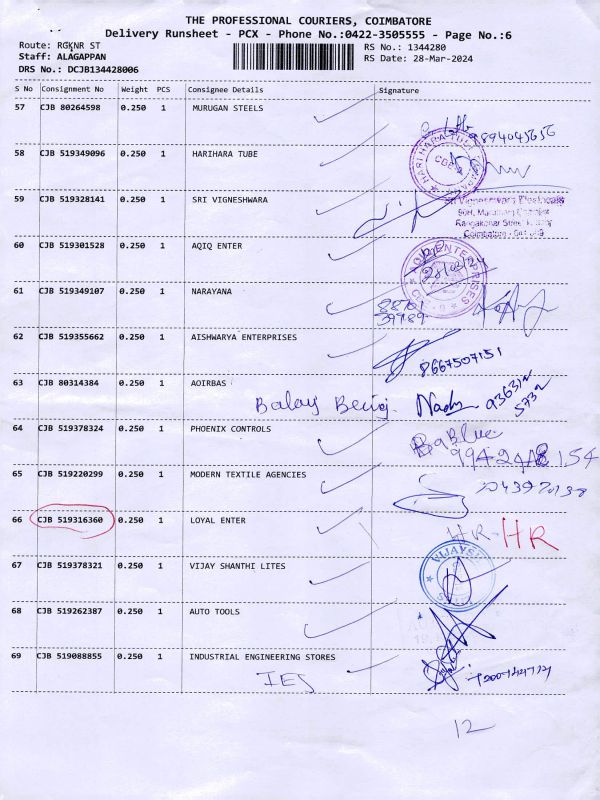 THE PROFESSIONAL COURIERS, COIMBATORE
Delivery Runsheet - PCX - Phone No.:0422-3505555 - Page No.:6
Route: RGKNR ST RS No.: 1344280
Staff: ALAGAPPAN RS Date: 28-Mar-2024
DRS No.: DCJB134428006
S No Consignment No Weight PCS Consignee Details Signature
57 CJB 80264598 0.250 1 MURUGAN STEELS
9894045656
58 CJB 519349096 0.250 1 HARIHARA TUBE
HARIHARA TUBE
59 CJB 519328141 0.250 1 SRI VIGNESHWARA
Sri Vigneshwara Electricals
Rangakonar Street
Coimbatore
60 CJB 519301528 0.250 1 AQIQ ENTER
ENTERPRISES
61 CJB 519349107 0.250 1 NARAYANA
62 CJB 519355662 0.250 1 AISHWARYA ENTERPRISES
8667507151
63 CJB 80314384 0.250 1 AOIRBAS
64 CJB 519378324 0.250 1 PHOENIX CONTROLS
65 CJB 519220299 0.250 1 MODERN TEXTILE AGENCIES
66 CJB 519316360 0.250 1 LOYAL ENTER
HR - HR
67 CJB 519378321 0.250 1 VIJAY SHANTHI LITES
68 CJB 519262387 0.250 1 AUTO TOOLS
69 CJB 519088855 0.250 1 INDUSTRIAL ENGINEERING STORES
IES
12